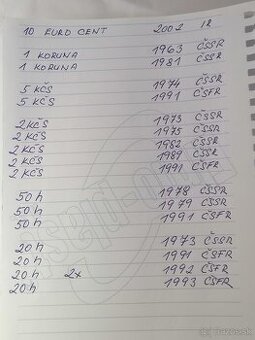 10 EURO CENT 2002 IR
1 KORUNA 1963 ČSSR
1 KORUNA 1981 ČSSR
5 KČS 1974 ČSSR
5 KČS 1991 ČSFR
2 KČS 1973 ČSSR
2 KČS 1975 ČSSR
2 KČS 1982 ČSSR
2 KČS 1989 ČSSR
2 KČS 1991 ČSFR
50 h 1978 ČSSR
50 h 1979 ČSSR
50 h 1991 ČSFR
20 h 1973 ČSSR
20 h 1991 ČSFR
20 h 2x 1992 ČSFR
20 h 1993 ČSFR
bazos.sk